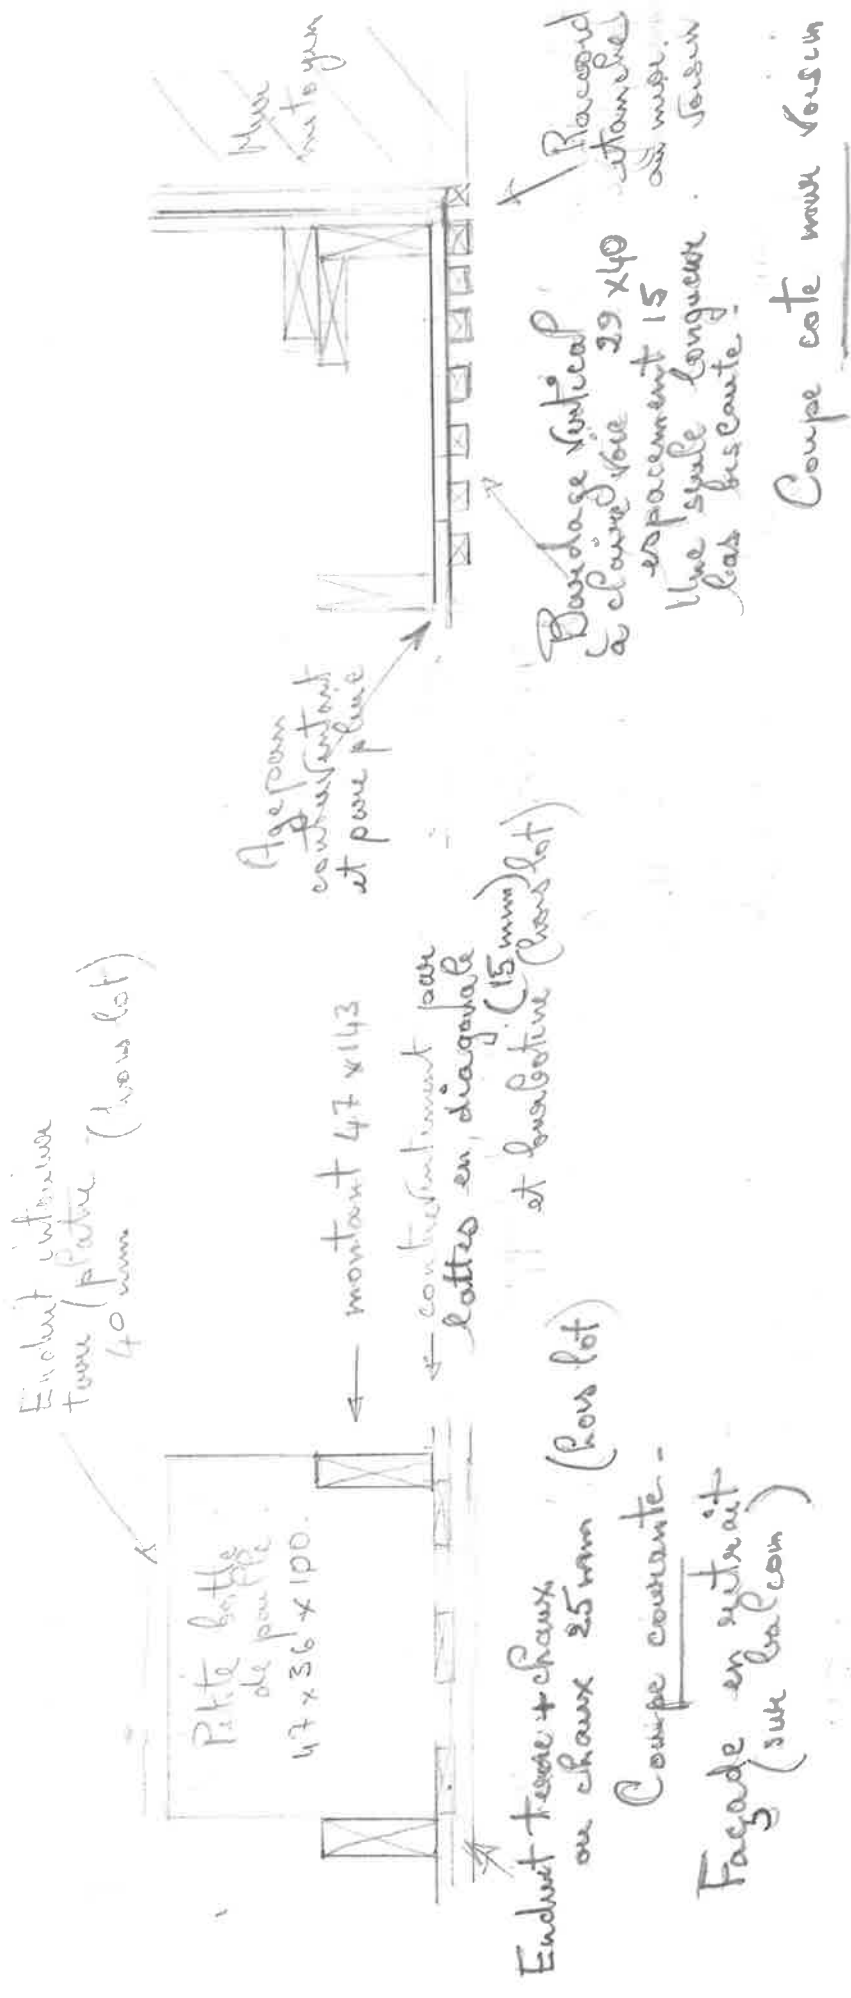 Enduit intérieur
terre / platre (hors lot)
40 mm
Petite botte
de paille
47 x 36 x 100.
montant 47 x 143
contreventement par
lattes en diagonale
(15 mm)
et barbotine (hors lot)
Enduit terre + chaux
ou chaux 25 mm (hors lot)
Coupe courante -
Façade en retrait
(sur balcon)
Agepan
contreventant
et pare pluie
Mur
mitoyen
Bardage vertical
à claire voie 29 x 40
espacement 15
Une seule longueur.
bas biseauté -
Raccord
étanche
au mur.
voisin
Coupe coté mur voisin